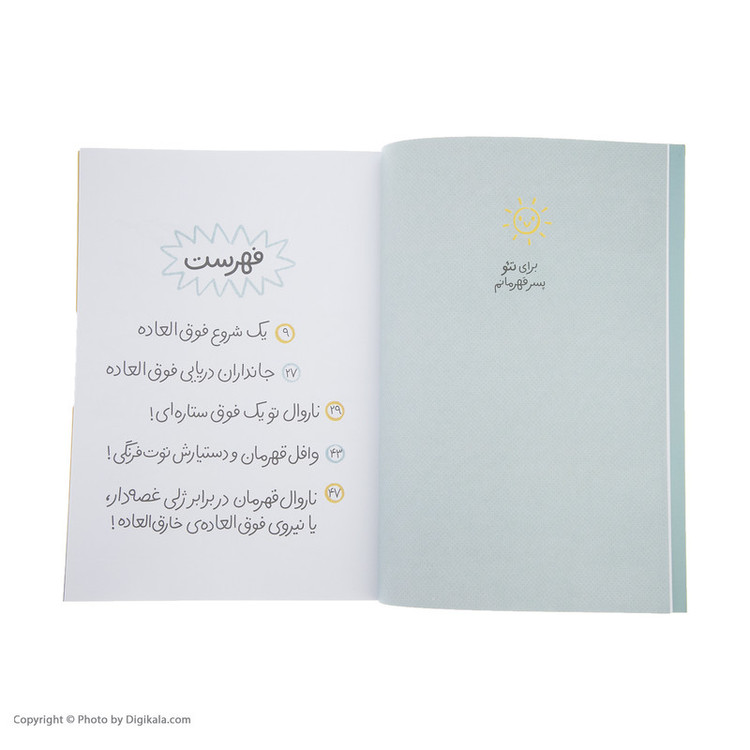 برای تئو
پسر قهرمانم
فهرست
۹ یک شروع فوق‌العاده
۲۷ جانداران دریایی فوق‌العاده
۲۹ ناروال تو یک فوق ستاره‌ای!
۴۳ وافل قهرمان و دستیارش توت‌فرنگی!
۴۷ ناروال قهرمان در برابر ژلی غصه‌دار،
یا نیروی فوق‌العاده‌ی خارق‌العاده!
Copyright © Photo by Digikala.com